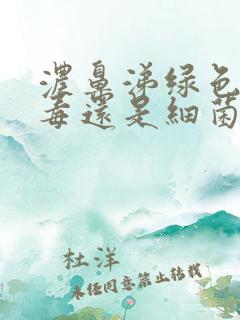 濃鼻涕绿色
毒還是細菌
杜洋
未经同意禁止转载